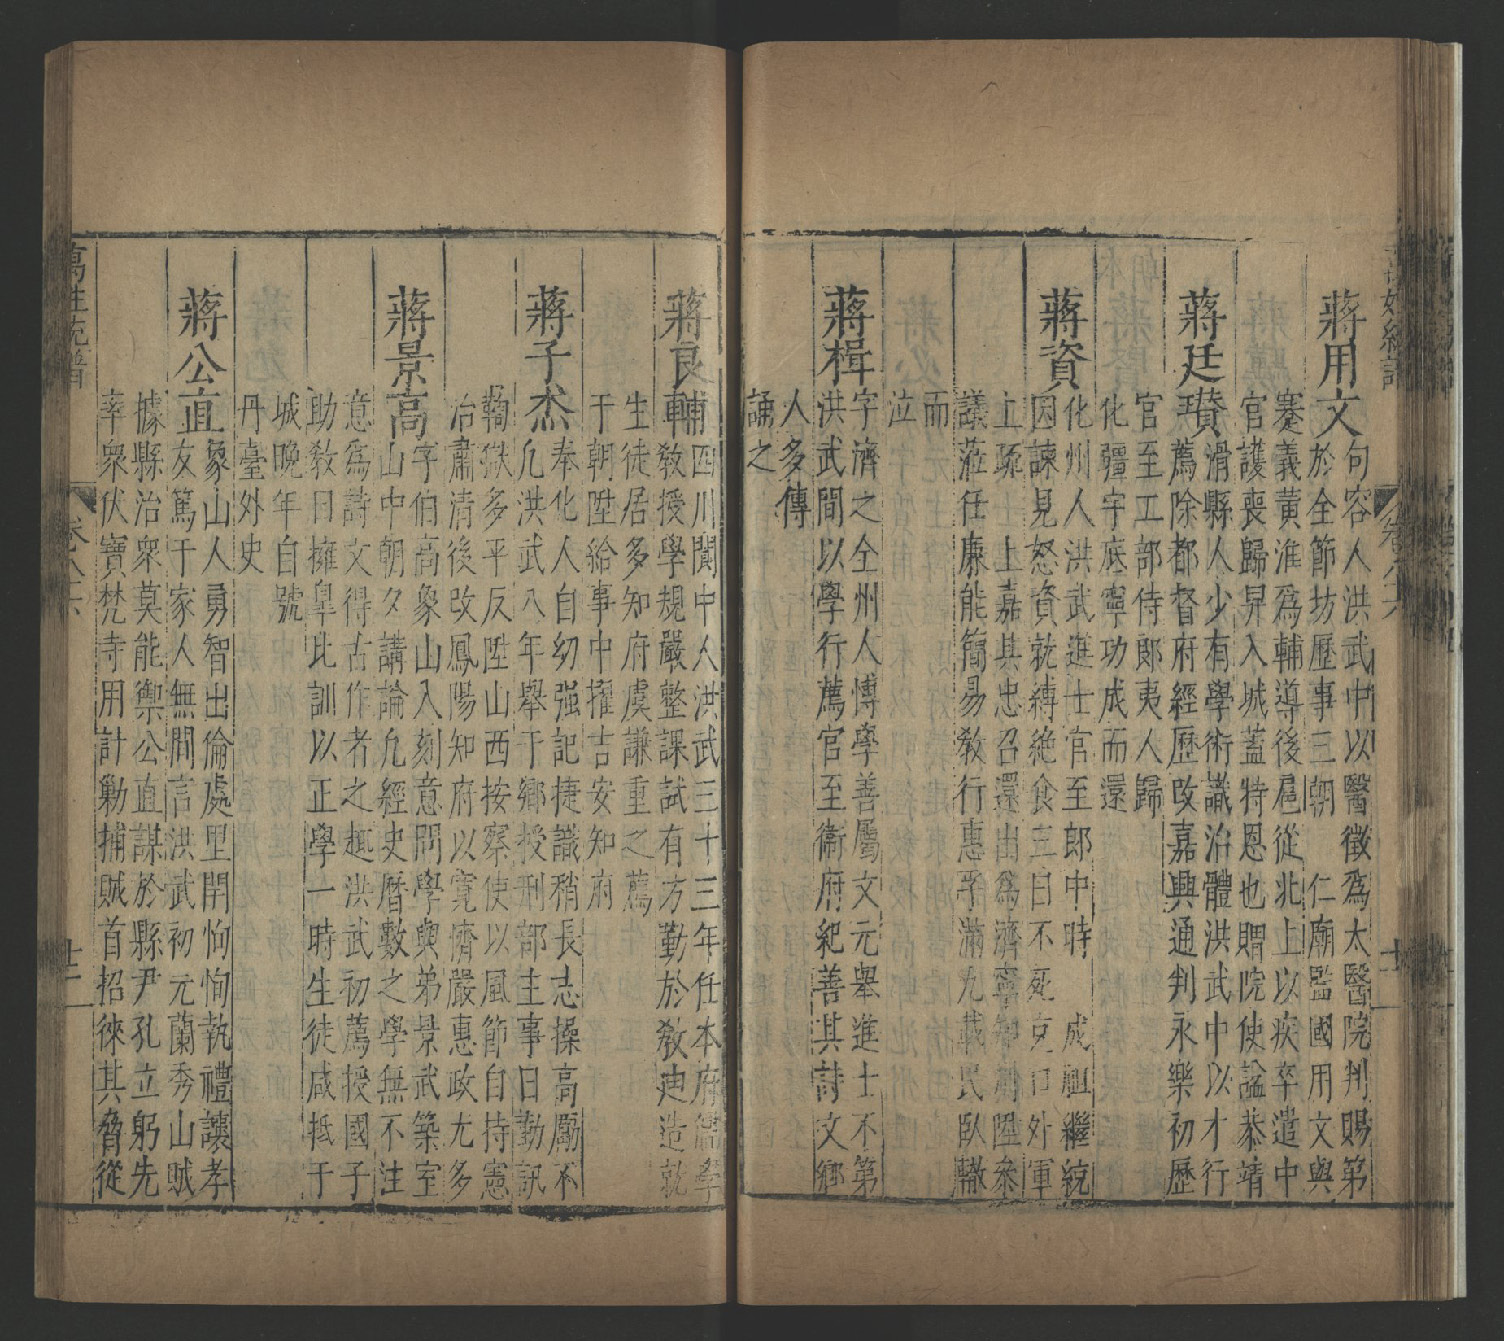 蔣用文
句容人洪武中以醫徵爲太醫院判賜第
於全節坊歷事三朝　仁廟監國用文與
蹇義黃淮爲輔導後扈從北上以疾卒遣中
官護喪歸昇入城蓋特恩也贈院使諡恭靖
蔣廷瓚
滑縣人少有學術識治體洪武中以才行
薦除都督府經歷改嘉興通判永樂初歷
官至工部侍郎夷人歸
化疆宇底寧功成而還
蔣資
化州人洪武進士官至郎中時　成祖繼統
因諫見怒資就縛絶食三日不死克口外軍
上疏　上嘉其忠召還出爲濟寧知府陞參
議蒞任廉能簡易教行惠孚滿九載民臥轍
而
泣
蔣楫
字濟之全州人博學善屬文元舉進士不第
洪武間以學行薦官至衞府紀善其詩文鄉
人多傳
誦之
蔣良輔
四川閬中人洪武三十三年任本府儒學
教授學規嚴整課試有方勤於教迪造就
生徒居多知府虞謙重之薦
于朝陞給事中擢吉安知府
蔣子杰
奉化人自幼强記捷識稍長志操高勵不
凢洪武八年舉于鄉授刑部主事日勤訊
鞫獄多平反陞山西按察使以風節自持憲
冶肅清後改鳳陽知府以寬濟嚴惠政尤多
蔣景高
字伯高象山人刻意問學與弟景武築室
山中朝夕講論凢經史曆數之學無不注
意爲詩文得古作者之趣洪武初薦授國子
助教日擁臯比訓以正學一時生徒咸抵于
城晚年自號
丹臺外史
蔣公直
象山人勇智出倫處里閈恂恂執禮讓孝
友篤于家人無間言洪武初元蘭秀山賊
據縣治衆莫能禦公直謀於縣尹孔立躬先
率衆伏寶梵寺用計勦捕賊首招徠其脅從
萬姓統譜
卷八十六